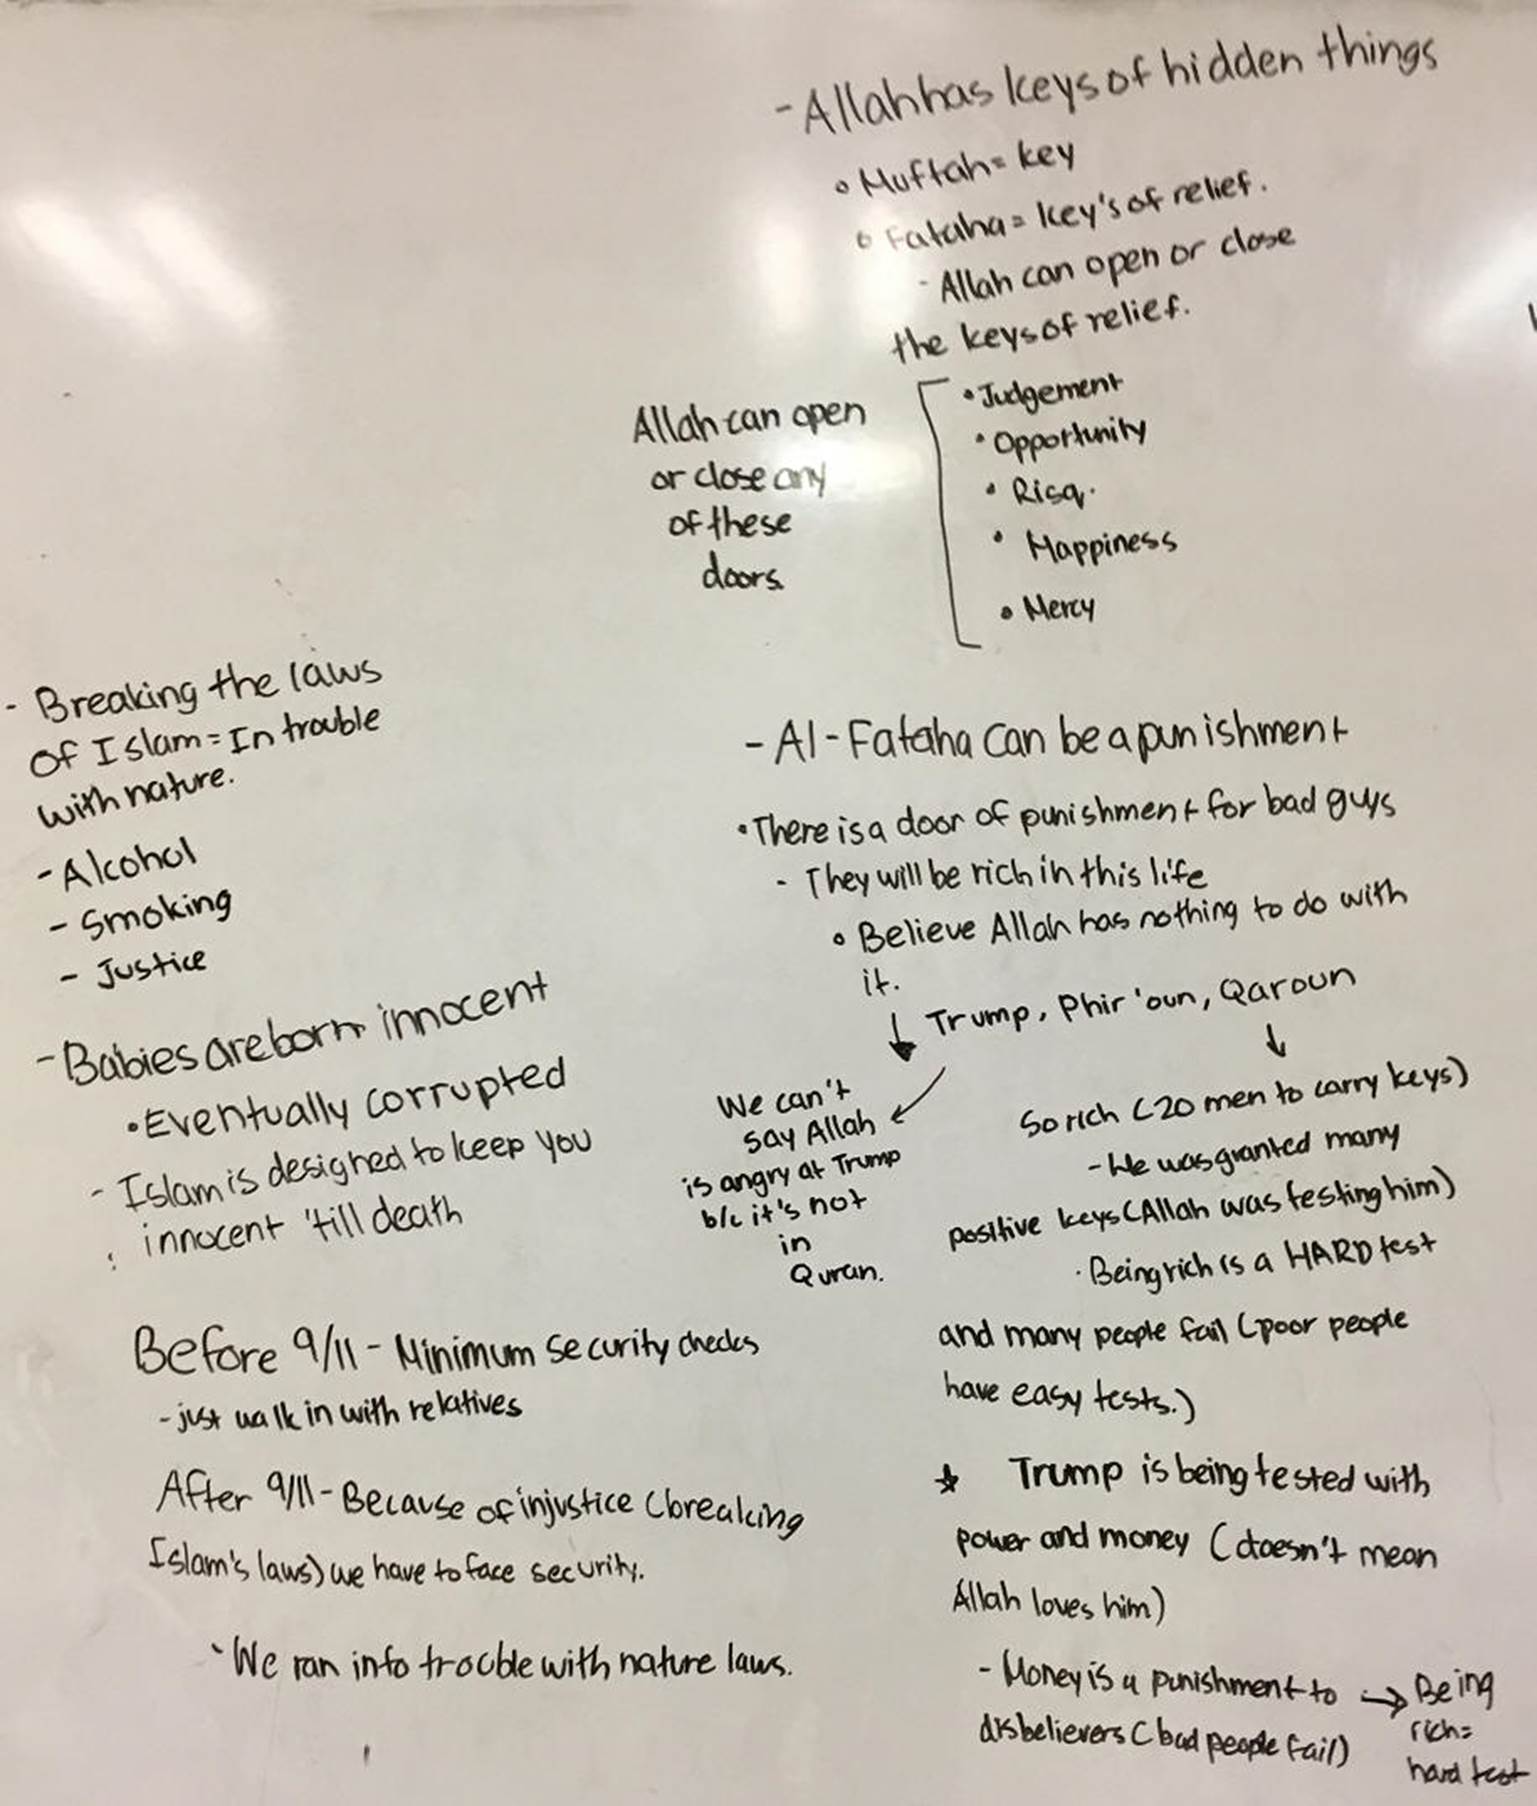 - Allah has keys of hidden things
• Muftah = key
• Fataha = key's of relief.
- Allah can open or close
the keys of relief.
Allah can open
or close any
of these
doors.
• Judgement
• Opportunity
• Risq.
• Happiness
• Mercy
- Breaking the laws
of Islam = In trouble
with nature.
- Alcohol
- Smoking
- Justice
- Babies are born innocent
• Eventually corrupted
- Islam is designed to keep you
innocent 'till death
Before 9/11 - Minimum security checks
- just walk in with relatives
After 9/11 - Because of injustice (breaking
Islam's laws) we have to face security.
• We ran into trouble with nature laws.
- Al-Fataha can be a punishment
• There is a door of punishment for bad guys
- They will be rich in this life
• Believe Allah has nothing to do with
it.
↓ Trump, Phir'oun, Qaroun
We can't
say Allah
is angry at Trump
b/c it's not
in
Quran.
↓
So rich (20 men to carry keys)
- He was granted many
positive keys (Allah was testing him)
• Being rich is a HARD test
and many people fail (poor people
have easy tests.)
☆ Trump is being tested with
power and money (doesn't mean
Allah loves him)
- Money is a punishment to
disbelievers (bad people fail)
→ Being
rich =
hard test